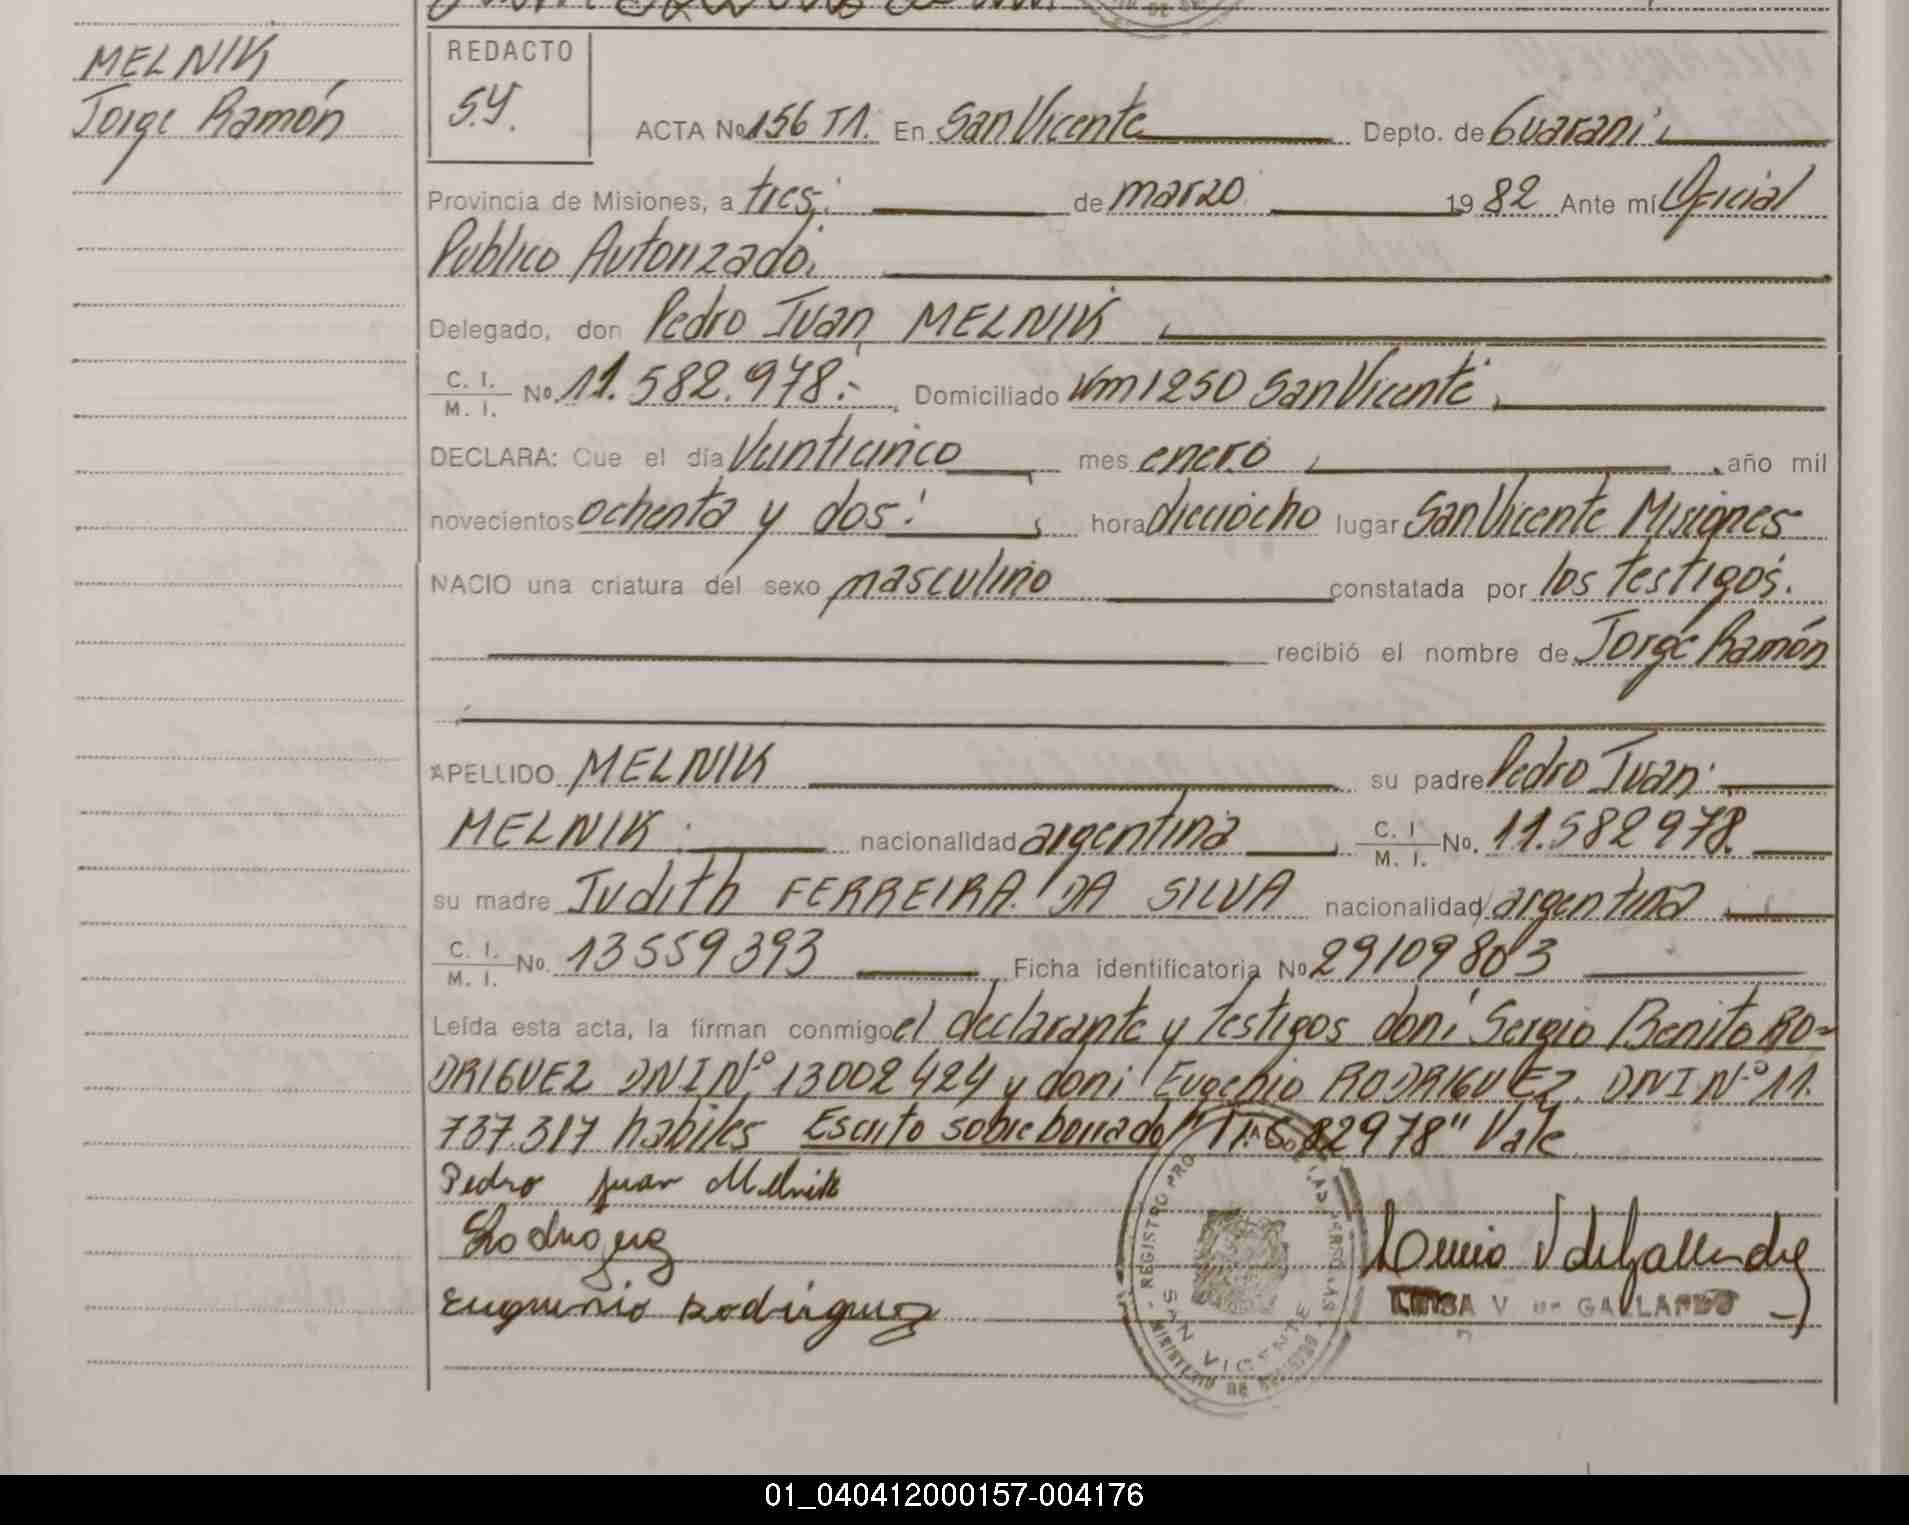 MELNIK
Jorge Ramón
REDACTO
S.Y.
ACTA No 156 T1. En San Vicente Depto. de Guaraní
Provincia de Misiones, a tres: de marzo 1982 Ante mí Oficial
Publico Autorizado.
Delegado, don Pedro Juan MELNIK
C. I. / M. I. No. 11.582.978.- Domiciliado Km 1250 San Vicente
DECLARA: Que el día Veinticinco mes enero año mil
novecientos ochenta y dos: hora dieciocho lugar San Vicente Misiones
NACIO una criatura del sexo masculino constatada por los testigos.
recibió el nombre de Jorge Ramón
APELLIDO MELNIK su padre Pedro Juan
MELNIK nacionalidad argentina C. I / M. I. No. 11.582978.
su madre Judith FERREIRA DA SILVA nacionalidad argentina
C. I. / M. I. No. 13559393 Ficha identificatoria No 29109803
Leída esta acta, la firman conmigo el declarante y testigos don: Sergio Benito RO=
DRIGUEZ DNI N.º 13002424 y don: Eugenio RODRIGUEZ. DNI N.º 11.
737.317 habiles Escrito sobre borrado 82978" Vale
Pedro Juan Melnik
Rodriguez
Eugenio Rodriguez
V de Gallardo
LUISA V DE GALLARDO
REGISTRO PRO
SAN VICENTE
MINISTERIO DE
01_040412000157-004176